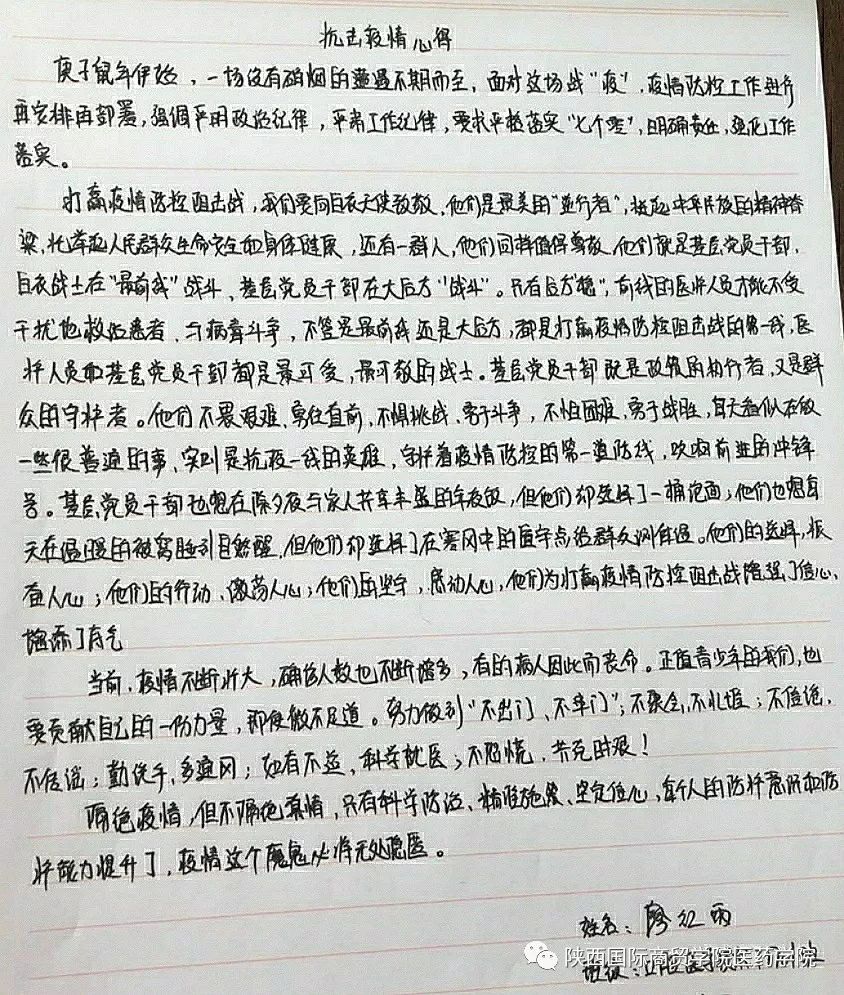 抗击疫情心得
庚子鼠年伊始，一场没有硝烟的遭遇不期而至，面对这场战“疫”，疫情防控工作进行
再安排再部署，强调严明政治纪律，严肃工作纪律，要求严格落实“七个零”，明确责任，强化工作
落实。
打赢疫情防控阻击战，我们要向白衣天使致敬，他们是最美的“逆行者”，挺起中华民族的精神脊
梁，托举起人民群众生命安全和身体健康，还有一群人，他们同样值得尊敬，他们就是基层党员干部，
白衣战士在“最前线”战斗、基层党员干部在大后方“战斗”。只有后方“稳”，前线的医护人员才能不受
干扰地救治患者、与病毒斗争，不管是最前线还是大后方，都是打赢疫情防控阻击战的第一线，医
护人员和基层党员干部都是最可爱，最可敬的战士。基层党员干部既是政策的执行者，又是群
众的守护者。他们不畏艰难、勇往直前，不惧挑战、勇于斗争，不怕困难、勇于战胜，每天看似在做
一些很普通的事、实则是抗疫一线的英雄，守护着疫情防控的第一道防线，吹响前进的冲锋
号。基层党员干部也想在除夕夜与家人共享丰盛的年夜饭，但他们却选择了一桶泡面；他们也想每
天在温暖的被窝睡到自然醒，但他们却选择了在寒风中的值守点给群众测体温。他们的选择，振
奋人心；他们的行动、激荡人心；他们的坚守，感动人心，他们为打赢疫情防控阻击战增强了信心、
增添了底气
当前，疫情不断扩大，确诊人数也不断增多，有的病人因此而丧命。正值青少年的我们，也
要贡献自己的一份力量，即使微不足道。努力做到“不出门、不串门”；不聚会，不扎堆；不信谣，
不传谣；勤洗手，多通风；如有不适，科学就医；不恐慌，共克时艰！
隔绝疫情，但不隔绝真情，只有科学防治、精准施策、坚定信心，每个人的防护意识和防
护能力提升了，疫情这个魔鬼必将无处隐匿。
姓名：廖红雨
班级：
陕西国际商贸学院医药学院